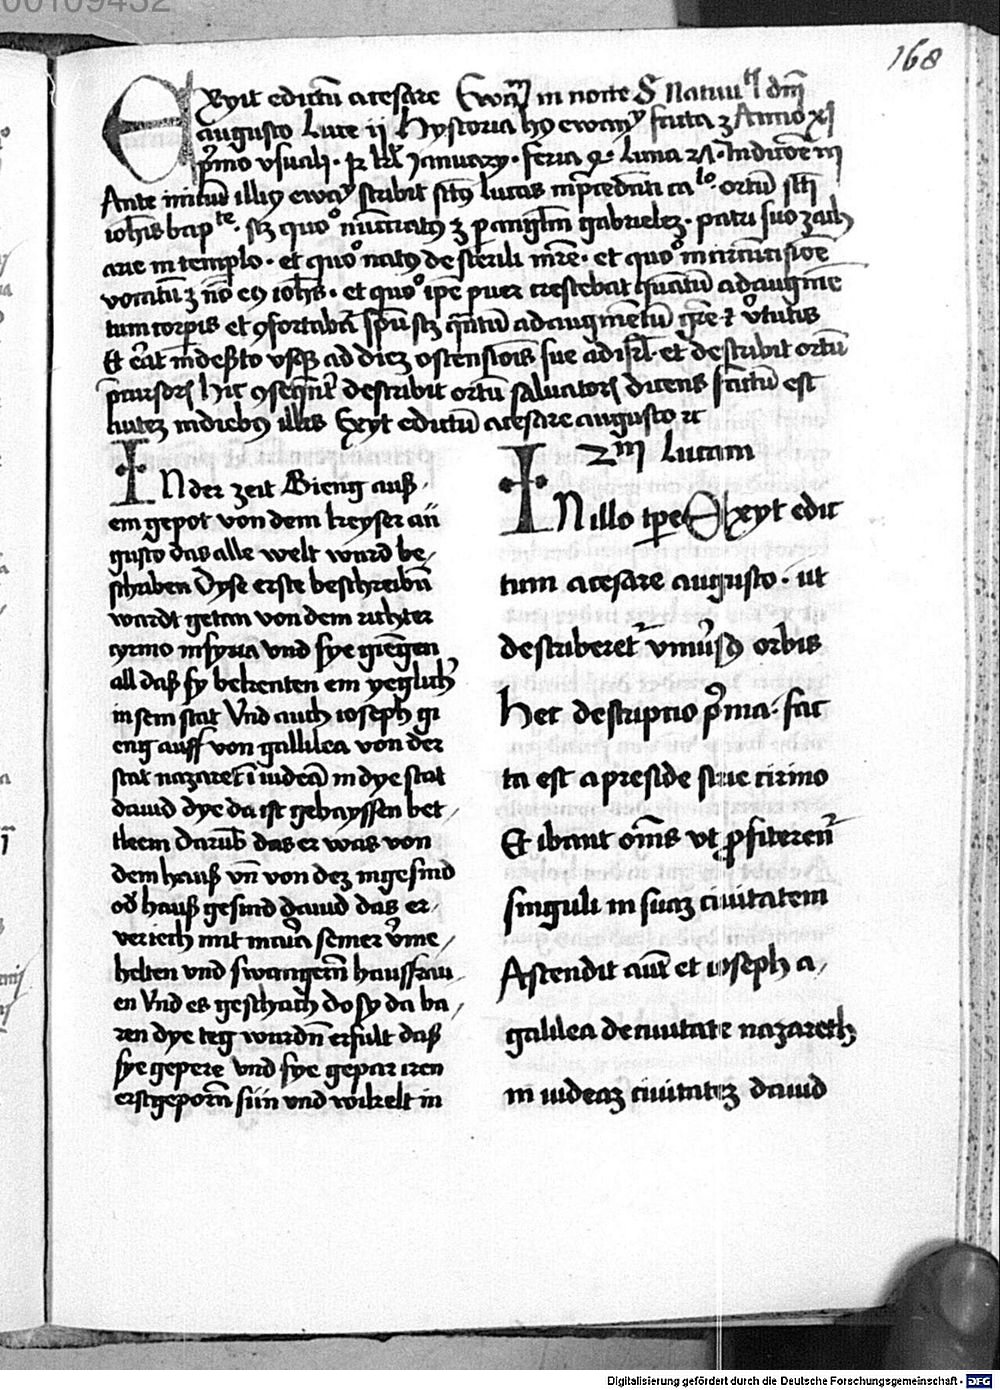 168
Exyit edictu a cesare Ewa in nocte S Natiui dni
augusto Luce ij Hystoria h ewa facta Anno
pmo vsuali . January . feria luna
Ante iniciu illi ewa scribit scts lucas in cedenti ca ortu scti
iohis bapte . scz quo nuciat per anglm gabrielez . patri suo zach
arie in templo . et quo nat de sterili mre . et quo in circucisioe
vocatu no ei iohs . et quo ipe puer crescebat qtu ad augme
tum corpis et gfortabat spu scz qntu ad augmetu gre et vtutis
Et erat in desto vsq ad diez ostensiois sue ad isrl . et describit ortu
pcursor hic gsequent describit ortu saluator dicens factu est
autez in dieb illis Exyt edictu a cesare augusto
In der zeit Gieng auß
em gepot von dem keyser au
gusto das alle welt wurd be
schriben Dyse erste beschreibu
wardt getan von dem richter
cyrino in syria vnd sye giengen
all daß sy bekenten ein yeglich
in sein stat Vnd auch ioseph gi
eng auff von gallilea von der
stat nazaret i iudea in dye stat
dauid dye da ist gehayssen bet
lleem Darub das er was von
dem hauß vn von dez ingesind
od hauß gesind dauid das er
veriech mit maria seiner vme
helten vnd swangern haussfrau
en Vnd es geschach do sy da ba
ren dye teg wurdn erfult daß
sye gepere vnd sye gepar iren
erstgeporn sun vnd wikelt in
zm Lucam
In illo tpe Exyt edic
tum a cesare augusto . ut
describeret vniusq orbis
Hec descriptio pma . fac
ta est a preside sirie cirino
Et ibant oms vt pfiteren
singuli in suaz ciuitatem
Ascendit aut et ioseph a
galilea de ciuitate nazareth
in iudeaz ciuitatez dauid
Digitalisierung gefördert durch die Deutsche Forschungsgemeinschaft - DFG